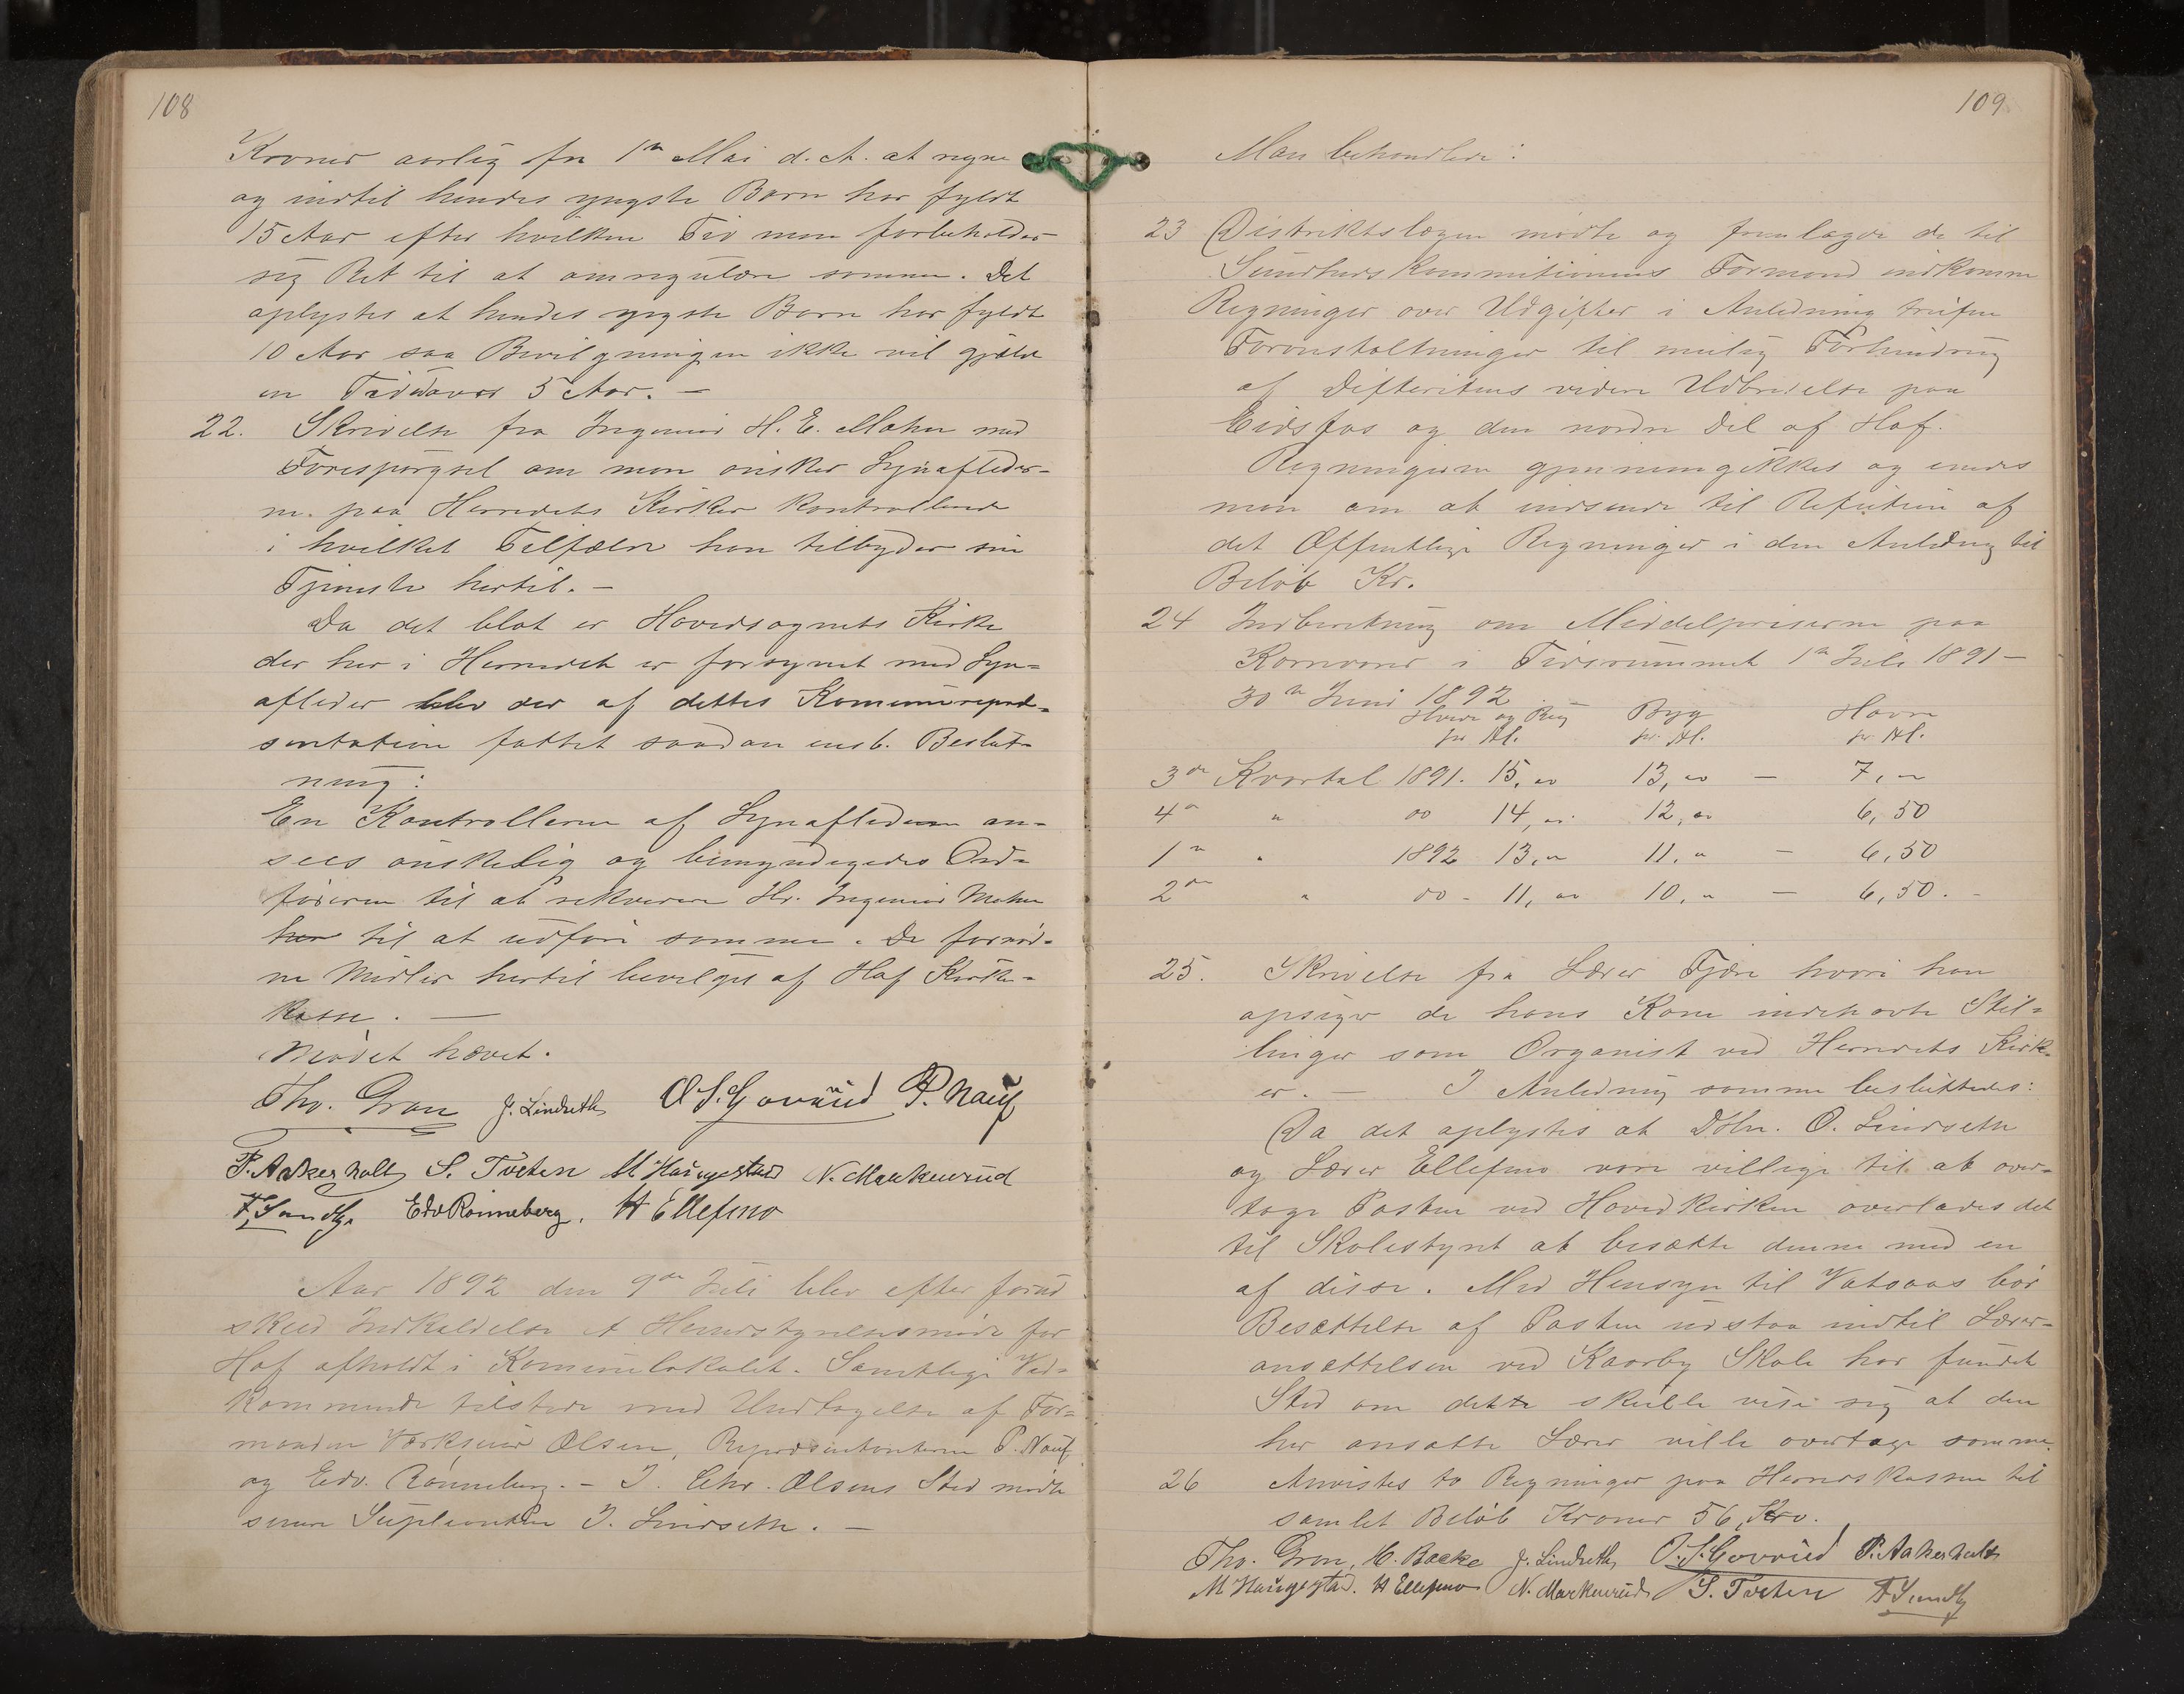 108
Kroner aarlig fra 1ste Mai d. A. at regne
og indtil hendes yngste Barn har fyldt
15 Aar efter hvilken Tid man forbeholder
sig Ret til at omregulere samme. Det
oplystes at hendes yngste Barn har fyldt
10 Aar saa Bevilgningen ikke vil gjælde
en Tid udover 5 Aar. –
22. Skrivelse fra Ingeniør H. E. Mohn med
Forespørgsel om man ønsker Lynafleder-
ne paa Herredets Kirker kontrollerede
i hvilket Tilfælde han tilbyder sin
Tjeneste hertil. –
Da det blot er Hovedsognets Kirke
der her i Herredet er forsynet med Lyn=
afleder blev der af dettes Komunerepræ=
sentation fattet saadan enst. Beslut=
ning:
En Kontrolleren af Lynaflederen an=
sees ønskelig og bemyndigedes Ord=
føreren til at rekvirere Hr. Ingeniør Mohn
her til at udføre samme. De fornød=
ne Midler hertil bevilges af Hof Kirke=
kasse. —
Mødet hævet.
Tho. Gron J. Lindseth O. S. Govrüd P. Nauf
P. Aakerholt S. Tveten M Haugestad N. Markenrud
F. Sundby Edv Rønneberg. H Ellefmo
Aar 1892 den 9de Juli blev efter forud
skeed Indkaldelse et Herredstyrelsesmøde for
Hof afholdt i Komunelokalet. Samtlige Ved=
kommende tilstede med Undtagelse af For=
manden Værkseier Olsen, Repræsentanterne P. Nauf
og Edv. Rønneberg. – I Chr. Olsens Sted mødte
senere Supleanten J. Lindseth. —
109
Man behandlede:
23 Distriktslægen mødte og fremlagde de til
Sundhedskommitionens Formand indkomne
Regninger over Udgifter i Anledning trufne
Foranstaltninger til mulig Forhindring
af Difteritens videre Udbredelse paa
Eidsfos og den nordre Del af Hof.
Regningerne gjennemgikkes og enedes
man om at indsende til Refution af
det Offentlige Regninger i den Anledning til
Beløb Kr.
24 Indberetning om Middelpriserne paa
Kornvarer i Tidsrummet 1ste Juli 1891 –
30te Juni 1892
Hvede og Rug Byg Havre
pr Hl. pr. Hl. pr Hl.
3de Kvartal 1891. 15, 00 13, 00 – 7, "
4de " do 14, 00 12, 00 6, 50
1ste " 1892 13, " 11, " – 6, 50
2det " do - 11, 00 10, " – 6, 50. -
25. Skrivelse fra Lærer Tjære hvori han
opsiger de hans Kone indehavte Stil=
linger som Organist ved Herredets Kirk=
er. – I Anledning samme besluttedes:
Da det oplystes at DHr. O. Lindseth
og Lærer Ellefmo vare villige til at over=
tage Posten ved Hovedkirken overlades det
til Skolestyret at besætte denne med en
af disse. Med Hensyn til Vatsaas bør
Besættelse af Posten udstaa indtil Lærer=
ansættelsen ved Kaarby Skole har fundet
Sted om dette skulde vise sig at den
her ansatte Lærer vilde overtage samme.
26 Anvistes to Regninger paa Herredskassen til
samlet Beløb Kroner 56, Kro.
Tho. Gron, H. Backe J. Lindseth O. S. Govrüd P. Aakerholt
M Haugestad. H Ellefmo N. Markenrud S. Tveten F Sundby